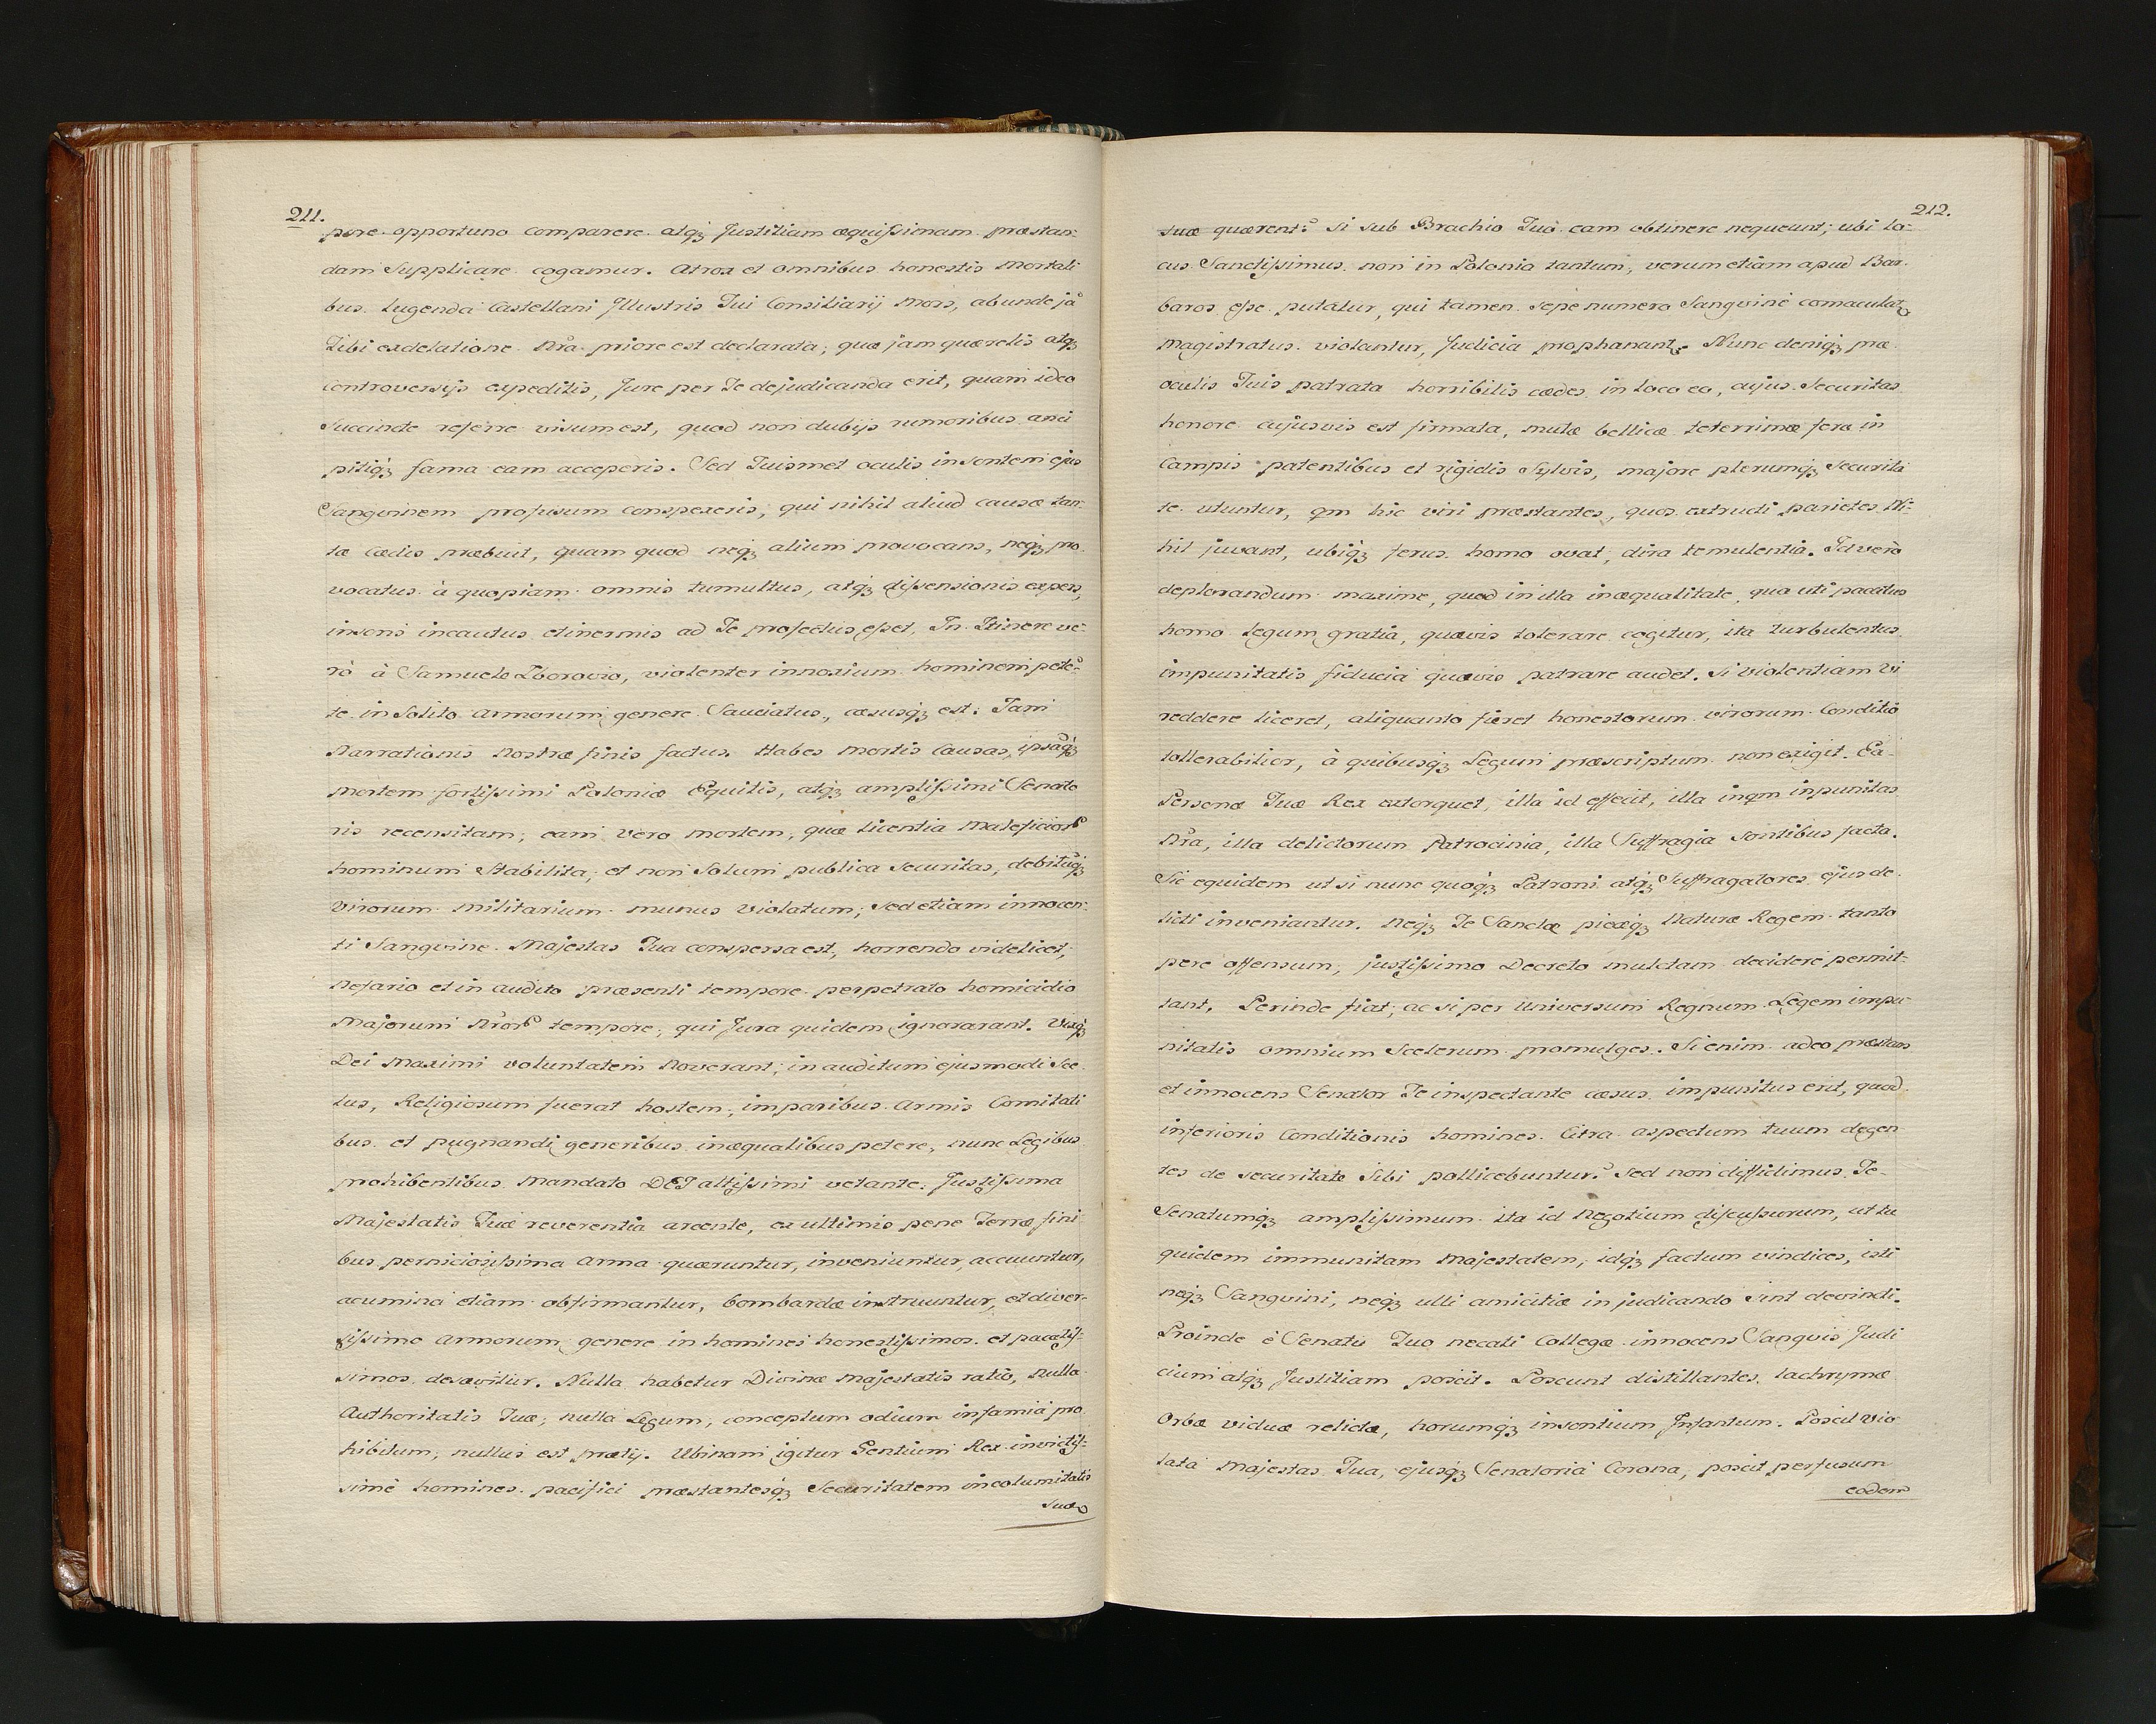 211.
pore opportuno comparere atqꝫ Justitiam æquißimam præstan-
dam Supplicare cogamur. Atrox et omnibus honestis Mortali
bus lugenda Castellani Jllustris Tui Consiliarij Mors, abunde jã
Tibi ex delatione Nrã priore est declarata; quæ jam quærelis atqꝫ
controversijs expeditis, Jure per Te dejudicanda erit, quam ideo
Succincte referre visum est, quod non dubijs rumoribus anci
pitiqꝫ fama eam acceperis. Sed Tuismet oculis insontem ejus
Sangvinem profusum conspexeris, qui nihil aliud causæ tan-
tæ cædis præbuit, quam quod neqꝫ alium provocans, neqꝫ pro
vocatus à quopiam omnis tumultus, atqꝫ dißensionis expers,
insons incautus et inermis ad Te profectus eßet, In Itinere ve-
rò à Samuele Zborovio, violenter innoxium hominem pete-
te in Solito armorum genere Sauciatus, cæsusqꝫ est: Jam
Narrationis Nostræ finis factus. Habes Mortis Causas, ipsãqꝫ
Mortem fortißimi Poloniæ Equitis, atqꝫ amplißimi Senato
ris recensitam; eam vero mortem, quæ licentia Maleficior
hominum Stabilita, et non Solum publica securitas, debitũqꝫ
Virorum militarium munus violatum; sed etiam innocen-
ti Sangvine Majestas Tua conspersa est, horrendo videlicet,
nefario et in audito præsenti tempore perpetrato homicidio
Majorum Nror tempore, qui Jura quidem ignorarant. Vixqꝫ
Dei Maximi voluntatem Noverant; in auditum ejusmodi Sce
lus, Religiosum fuerat hostem, imparibus armis Comitati
bus et pugnandi generibus inæqualibus petere, nunc Legibus
prohibentibus Mandato DEI altißimi vetante. Justißima
Majestatis Tuæ reverentia arcente, ex ultimis pene Terræ fini
bus perniciosißima arma quæruntur, inveniuntur, accuuntur,
acumina etiam obfirmantur, bombardæ instruuntur, et diver-
sißimo armorum genere in homines honestißimos et pacatiß-
simos desævitur. Nulla habetur Divinæ Majestatis ratio, nulla
Authoritatis Tuæ; nulla Legum, conceptum odium infamiã pro
hibitum, nullus est prætij. Ubinam igitur Gentium Rex invictiß-
simè homines pacifici præstantesqꝫ Securitatem incolumitatis
suæ
212.
suæ quærent? si sub Brachio Tuo eam obtinere nequeunt; ubi lo-
cus Sanctißimus non in Polonia tantum, verum etiam apud Bar-
baros eße putatur, qui tamen sepe numero Sangvine comaculat
Magistratus violantur, Judicia prophanant. Nunc deniqꝫ præ
oculis Tuis patrata horribilis cædes in loco eo, cujus Securitas
honore cujusvis est firmata, mutæ bellicæ teterrimæ feræ in
Campis patentibus et rigidis Sylvis, majore plerumqꝫ Securita
te utuntur, qm hic viri præstantes, quos extrudi parietes Ni-
hil juvant, ubiqꝫ ferus homo ovat, dira temulentia. Id verò
deplorandum maxime, quod in illa inæqualitate, qua uti pacatus
homo Legum gratia, quævis tolerare cogitur, ita turbulentus
impunitatis fiducia quævis patrare audet. Si violentiam Vi
reddere liceret, aliquanto fieret honestorum virorum Conditio
tollerabilior, à quibusqꝫ Legum præscriptum non exigit. Ea-
Personæ Tuæ Rex extorquet, illa id effecit, illa inqm inpunitas
Nrã, illa delictorum Patrocinia, illa Suffragia Sontibus facta.
Sic equidem ut si nunc quoqꝫ Patroni atqꝫ Suffragatores ejus de-
licti inveniantur. Neqꝫ Te Sanctæ pieæqꝫ Naturæ Regem tanto
pere offensum, justißimo Decreto mulctam decidere permit-
tant. Perinde fiat; ac si per Universum Regnum Legem impu-
nitatis omnium Scelerum promulges. Si enim adeo præstans
et innocens Senator Te inspectante cæsus impunitus erit, quod
inferioris Conditionis homines. Citra aspectum tuum degen
tes de securitate Sibi pollicebuntur? Sed non diffidimus Te-
Senatumqꝫ amplißimum ita id Negotium discußurum, ut tu
quidem immunitam Majestatem, idqꝫ factum vindices, isti
neqꝫ Sangvini, neqꝫ ulli amicitiæ in judicando Sint devincti.
Proinde è Senatu Tuo necati Collegæ innocens Sangvis Judi
cium atqꝫ Justitiam poscit. Poscunt distillantes lachrymæ
Orbæ viduæ relictæ, horumqꝫ insontium Jnfantum. Poscit vio
lata Majestas Tua, ejusqꝫ Senatoria Corona, poscit perfusum
eodem